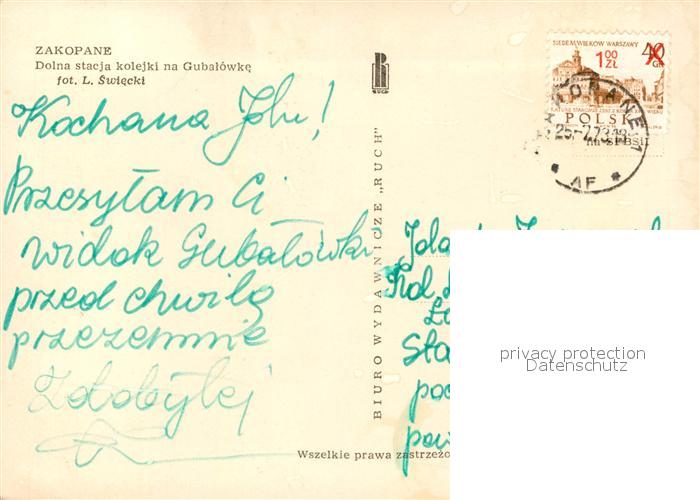 ZAKOPANE
Dolna stacja kolejki na Gubałówkę
fot. L. Święcki
Kochana Jolu!
Przesyłam Ci
widok Gubałówki
przed chwilą
przezemnie
zdobytej
BIURO WYDAWNICZE „RUCH”
RUCH
SIEDEM WIEKÓW WARSZAWY
40
GR
1,00
ZŁ
POLSKA
ZAKOPANE 1
25.-7.73.18
* AF *
Sta
pow
privacy protection
Datenschutz
Wszelkie prawa zastrzeżo